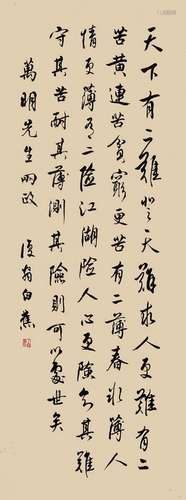 天下有二難登天難求人更難有二
苦黃連苦貧窮更苦有二薄春冰薄人
情更薄有二險江湖險人心更險知其難
守其苦耐其薄測其險則可以處世矣
萬明先生兩政 復翁白蕉